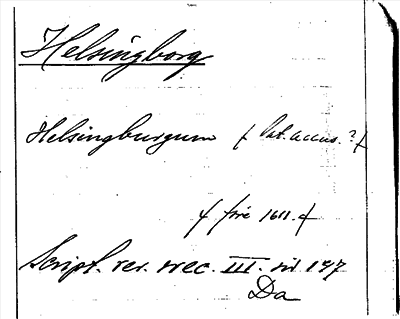 Helsingborg
Helsingburgum / lat. accus. ? /
/ före 1611. /
Script. rer. svec. III. sid 197
Da